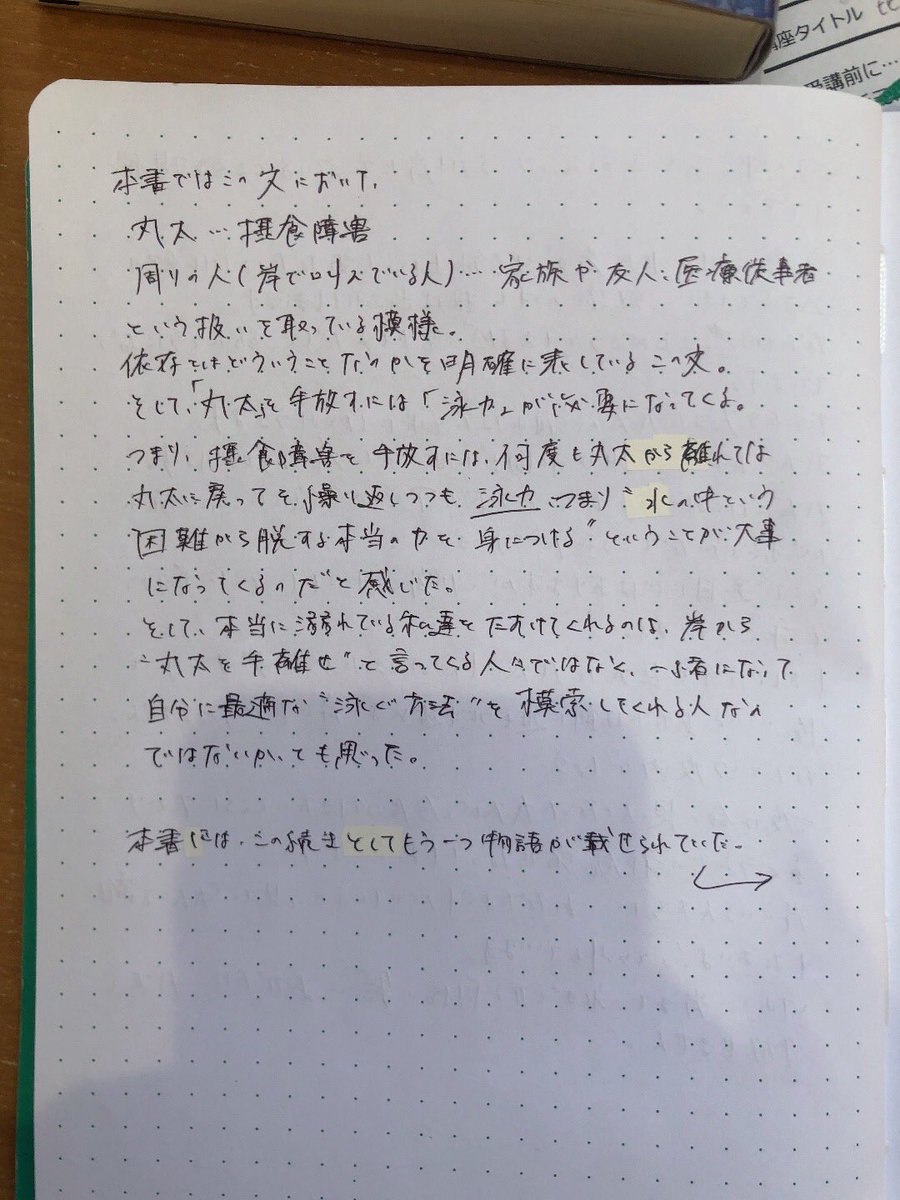 座タイトル
受講前に…
本書ではこの文において、
丸太…摂食障害
周りの人(岸で叫んでいる人)…家族や友人、医療従事者
という扱いを取っている模様。
依存とはどういうことなのかを明確に表しているこの文。
そして、「丸太」を手放すには「泳力」が必要になってくる。
つまり、摂食障害を手放すには、何度も丸太から離れては
丸太に戻ってを繰り返しつつも、泳力、つまり"水の中という
困難から脱する本当の力を身につける"ということが大事
になってくるのだ"と感じた。
そして、本当に溺れている私達をたすけてくれるのは、岸から
"丸太を手離せ"と言ってくる人々ではなく、一緒になって
自分に最適な"泳ぐ方法"を模索してくれる人なの
ではないか、とも思った。
本書には、この続きとしてもう一つ物語が載せられていた。